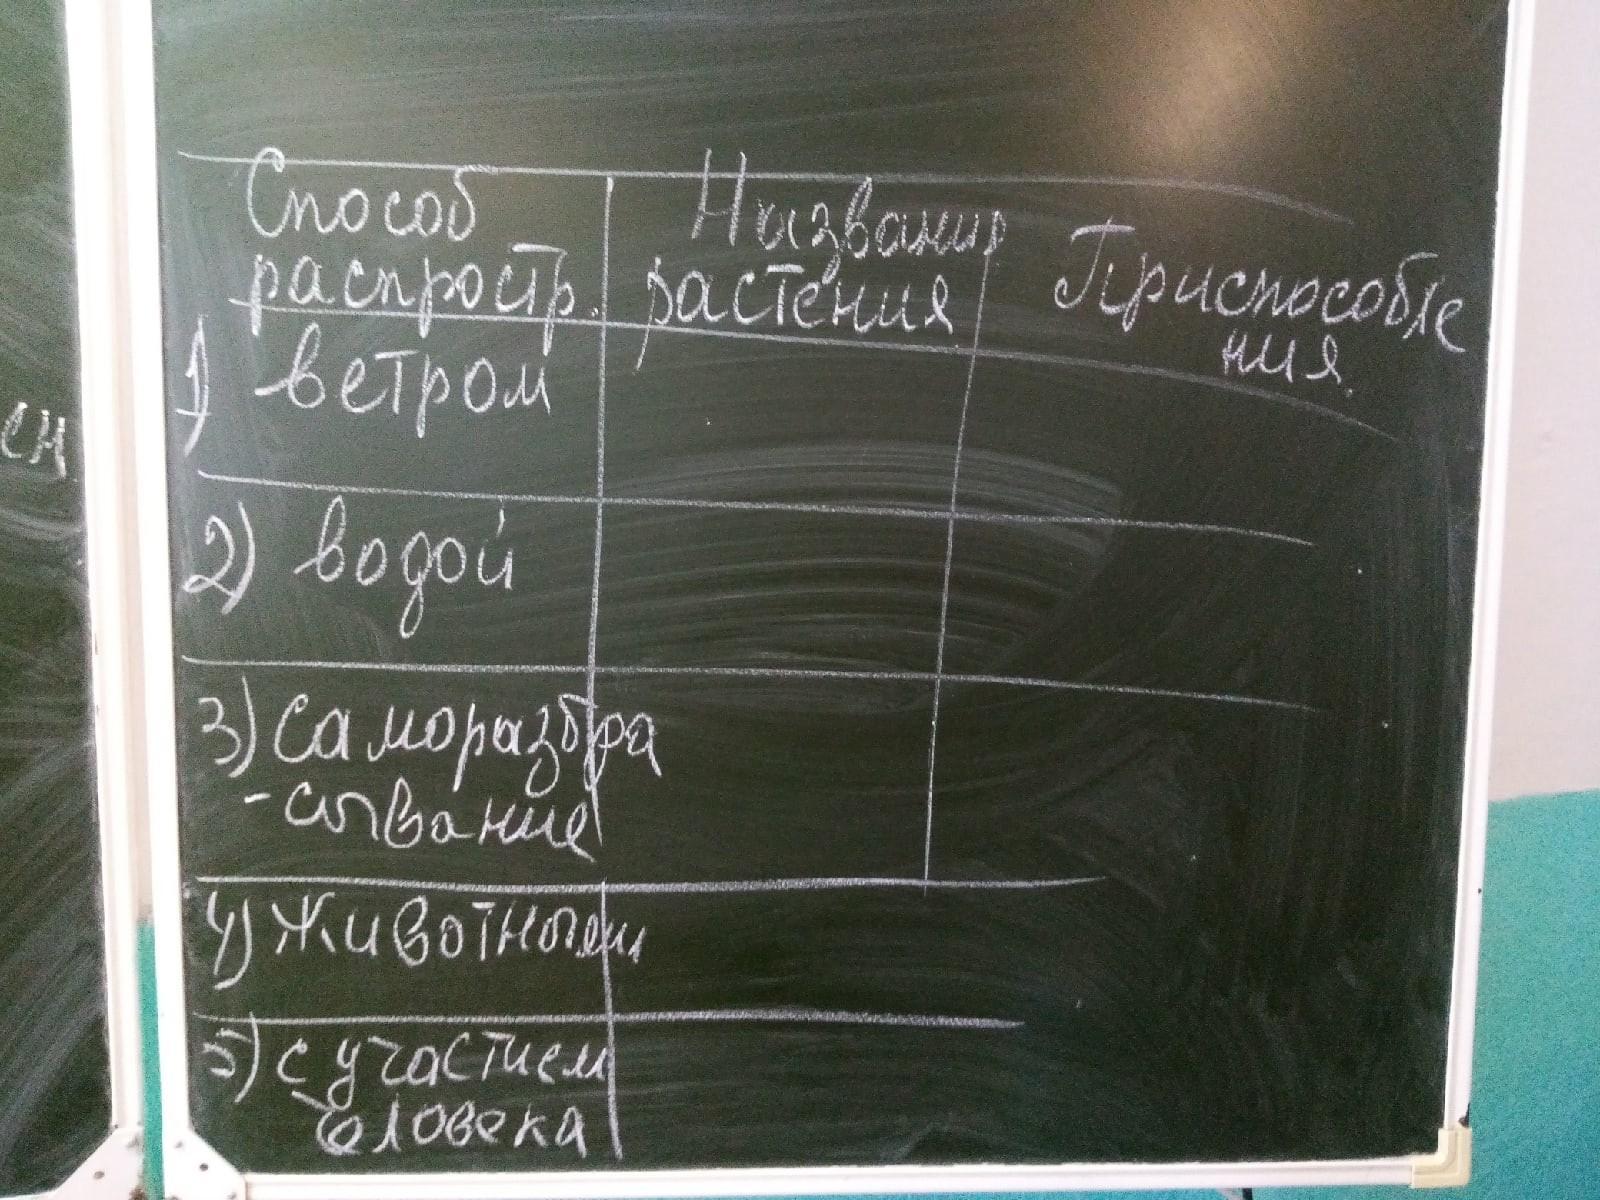 Способ
распростр.
Название
растения
Приспособле
ния.
1) ветром
2) водой
3) Саморазбра
-сывание
4) Животными
5) с участием
человека
ен